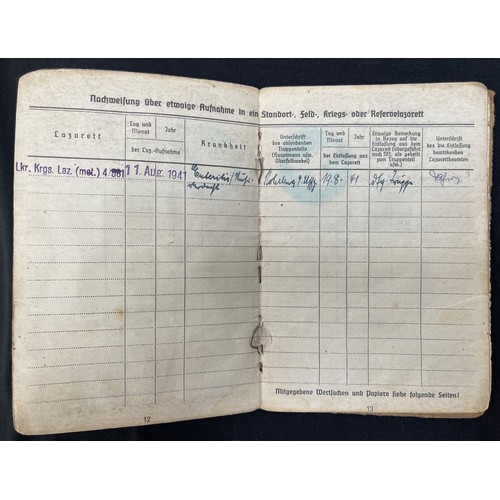 Nachweisung über etwaige Aufnahme in ein Standort-, Feld-, Kriegs- oder Reservelazarett
Lazarett
Tag und Monat
Jahr
der Laz.-Aufnahme
Krankheit
Unterschrift
des absendenden
Truppenteils
(Hauptmann usw.
Oberfeldwebel)
Tag und
Monat
Jahr
der Entlassung aus
dem Lazarett
Etwaige Bemerkung
in Bezug auf die
Entlassung aus dem
Lazarett (übergeführt
nach NN, als geheilt
zum Truppenteil
usw.)
Unterschrift
des die Entlassung
bewirkenden
Lazarettbeamten
Lkr. Krgs. Laz. (mot.) 4/
11. Aug. 1941
Enteritis/Ruhr-
verdacht
19.8.
41
Truppe
Mitgegebene Wertsachen und Papiere siehe folgende Seiten!
12
13